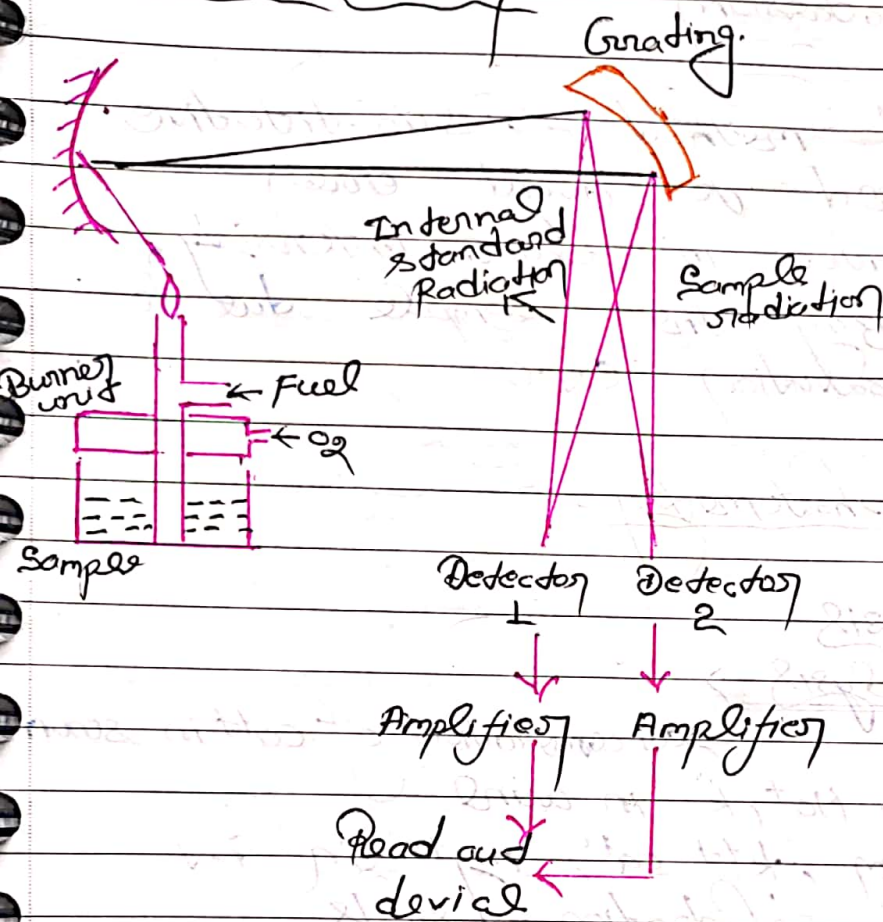 Grating.
Internal
standard
Radiation
Sample
radiation
Burner
unit
← Fuel
← O2
Sample
Detector
1
Detector
2
Amplifier
Amplifier
Read out
devical